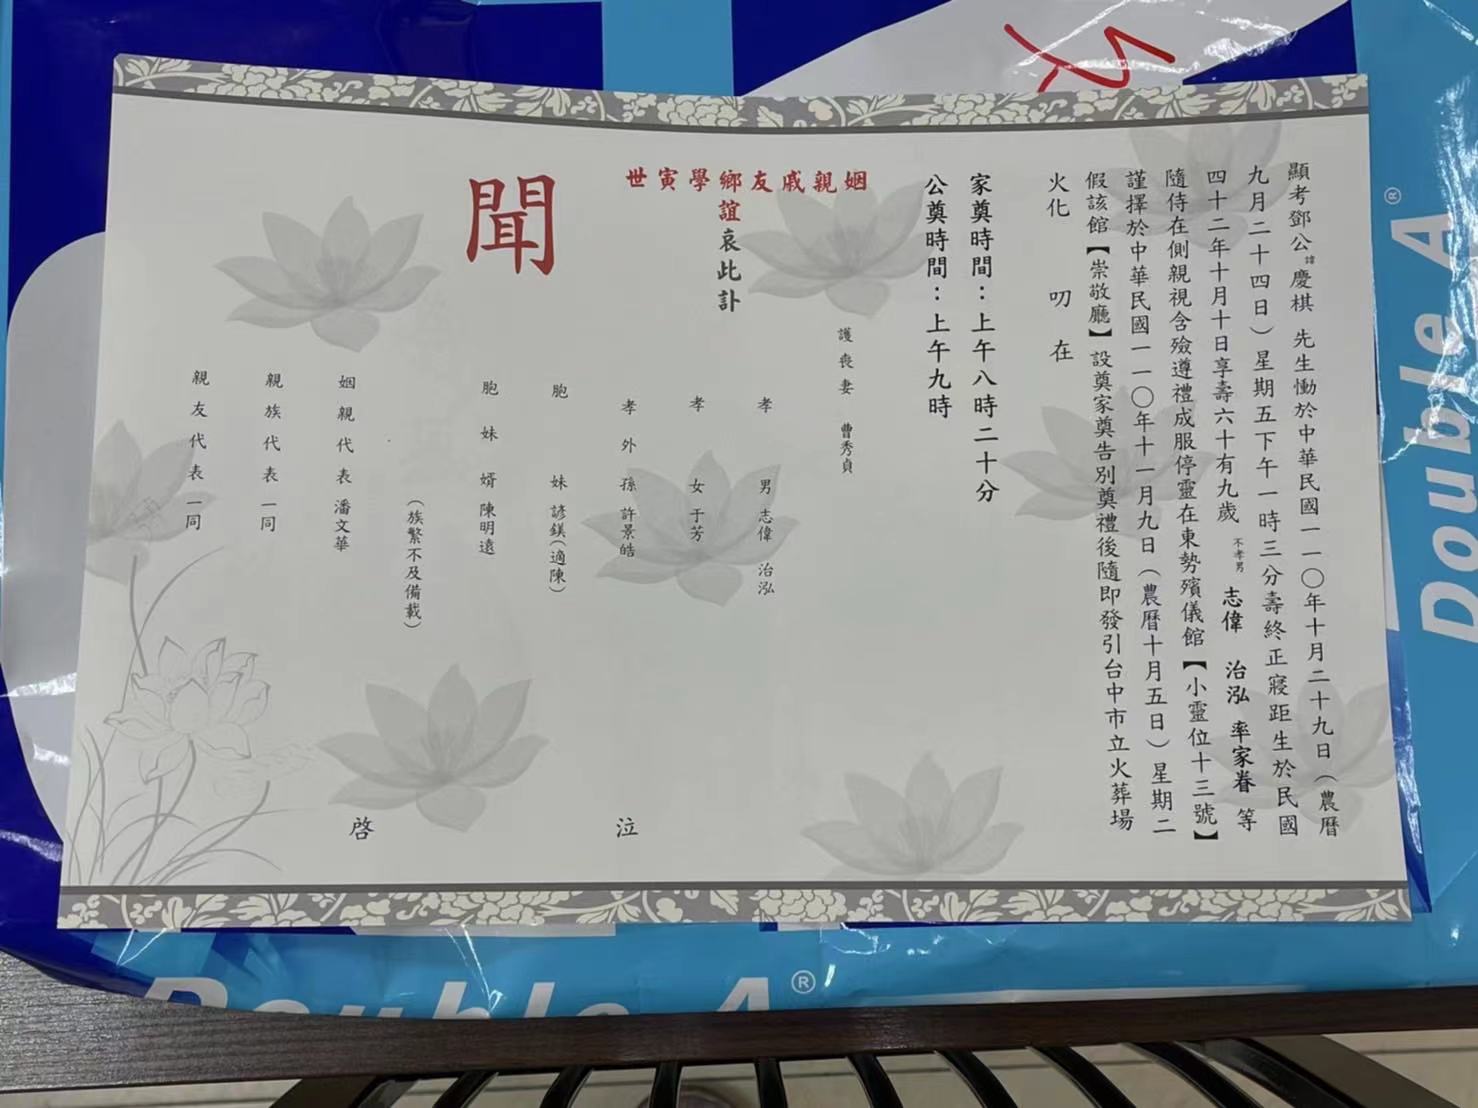 顯考鄧公諱慶棋 先生慟於中華民國一一〇年十月二十九日（農曆
九月二十四日）星期五下午一時三分壽終正寢距生於民國
四十二年十月十日享壽六十有九歲 不孝男 志偉 治泓 率家眷 等
隨侍在側親視含殮遵禮成服停靈在東勢殯儀館【小靈位十三號】
謹擇於中華民國一一〇年十一月九日（農曆十月五日）星期二
假該館【崇敬廳】設奠家奠告別奠禮後隨即發引台中市立火葬場
火化 叨 在
家奠時間：上午八時二十分
公奠時間：上午九時
世寅學鄉友戚親姻
誼哀此訃
聞
護喪妻 曹秀貞
孝 男 志偉 治泓
孝 女 于芳
孝外孫 許景皓
胞 妹 諺鎂（適陳）
胞妹婿 陳明遠
（族繁不及備載）
姻親代表 潘文華
親族代表 一同
親友代表 一同
泣
啓
Double A®
Double A®